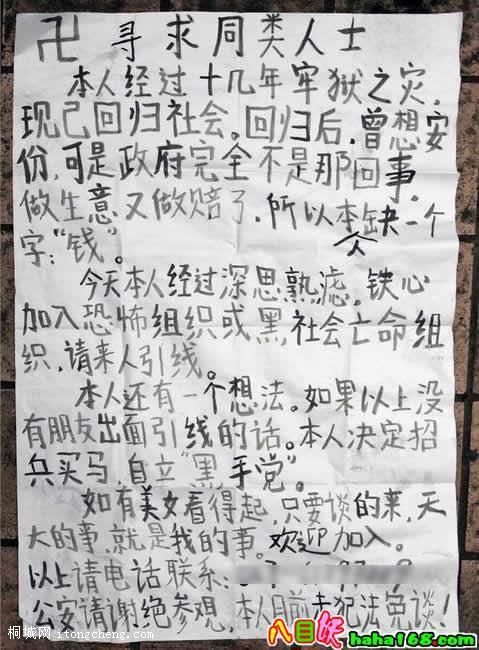 卐 寻求同类人士
本人经过十几年牢狱之灾，
现已回归社会。回归后，曾想安
份，可是政府完全不是那回事。
做生意又做赔了，所以本人缺一个
字：“钱”。
今天本人经过深思熟虑，铁心
加入恐怖组织或黑社会亡命组
织，请来人引线。
本人还有一个想法。如果以上没
有朋友出面引线的话。本人决定招
兵买马，自立“黑手党”。
如有美女看得起，只要谈的来，天
大的事，就是我的事。欢迎加入。
以上请电话联系：
公安请谢绝参观，本人目前未犯法免谈！
桐城网 itongcheng.com
八目妖
haha168.com